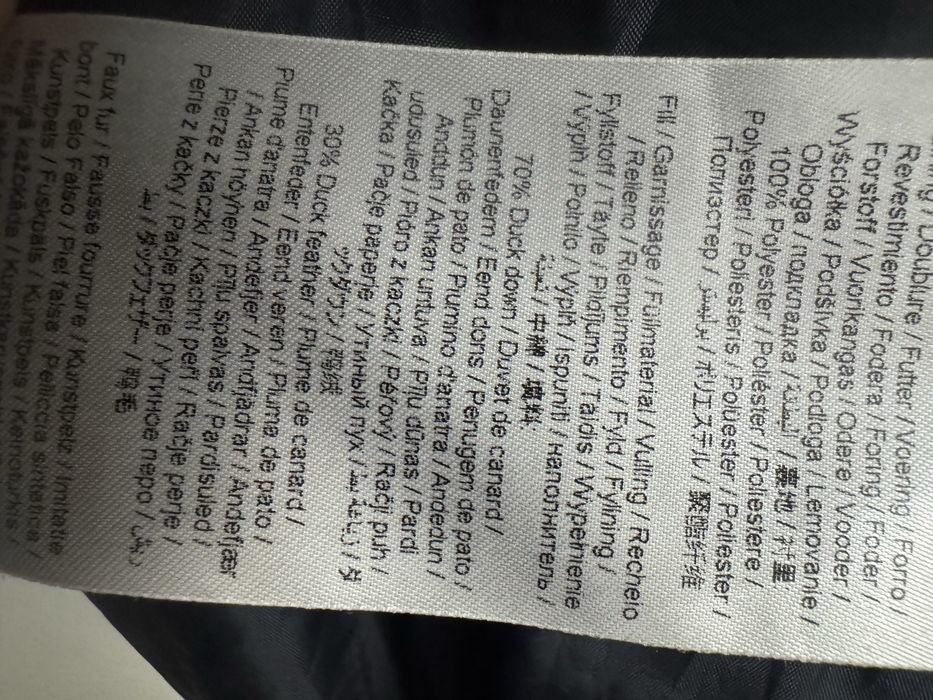 Doublure / Futter / Voering / Forro /
Revestimiento / Fodera / Foring / Foder /
Forstoff / Vuorikangas / Odere / Vooder /
Wyściółka / Podšívka / Podloga / Lemovanie /
Obloga / подкладка / البطانة / 裏地 / 衬里
100% Polyester / Poliéster / Poliestere /
Polyesteri / Poliesteris / Poluester / Poilester /
Полиэстер / بوليستر / ポリエステル / 聚酯纤维
Fil / Garnissage / Füllmaterial / Vulling / Recheio
/ Relleno / Riempimento / Fyld / Fyllning /
Fyllstoff / Täyte / Pildījums / Täidis / Wypełnienie
/ Výplň / Polnilo / Výplň / Ispuniti / наполнитель /
中綿 / 填料
70% Duck down / Duvet de canard /
Daunenfedern / Eend dons / Penugem de pato /
Plumon de pato / Piumino d'anatra / Andedun /
Anddun / Ankan untuva / Pīļu dūnas / Pardi
udusuled / Pióro z kaczki / Péřový / Račji puh /
Kačka / Pačje paperje / Утиный пух / / ダ
ックダウン / 鸭绒
30% Duck feather / Plume de canard /
Entenfeder / Eend veren / Pluma de pato /
Piume d'anatra / Andefjer / Andfjädrar / Andefjær
/ Ankan höyhen / Pīļu spalvas / Pardisuled /
Pierze z kaczki / Kachní peří / Račje perje /
Perie z kačky / Pačje perje / Утиное перо /
/ ダックフェザー / 鸭毛
Faux fur / Fausse fourrure / Kunstpelz / Imitatie
bont / Pelo Falso / Piel falsa / Pelliccia sintetica /
Kunstpels / Fuskpäls / Kunstpels / Keinoturkis
Mākslīgā kažokāda /